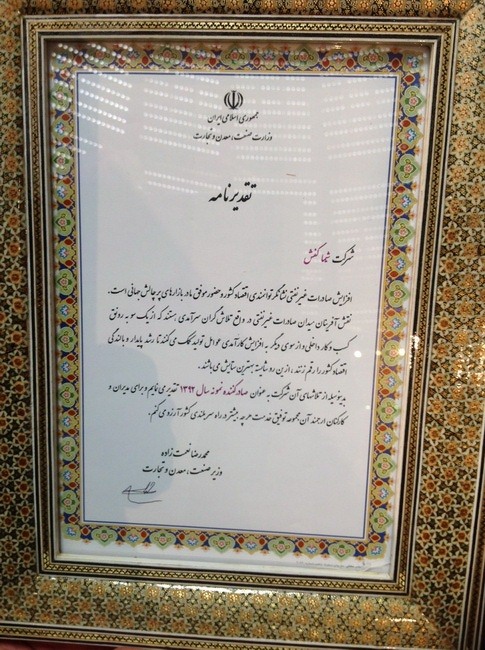 جمهوری اسلامی ایران
وزارت صنعت، معدن و تجارت
تقدیرنامه
شرکت شیما کفش
افزایش صادرات غیرنفتی نشانگر توانمندی اقتصاد کشور و حضور موفق ما در بازارهای پر چالش جهانی است.
نقش آفرینان میدان صادرات غیرنفتی در واقع تلاش گران سرآمدی هستند که از یک سو به رونق
کسب و کار داخلی و از سوی دیگر به افزایش کارآمدی عوامل تولید کمک می کنند تا رشد پایدار و بالندگی
اقتصاد کشور را رقم زنند، از این رو شایسته بهترین ستایش می باشند.
بدینوسیله از تلاشهای آن شرکت به عنوان صادرکننده نمونه سال ۱۳۹۲ تقدیر می نمایم و برای مدیران و
کارکنان ارجمند آن مجموعه توفیق خدمت هر چه بیشتر در راه سربلندی کشور آرزو می کنم.
محمدرضا نعمت زاده
وزیر صنعت، معدن و تجارت